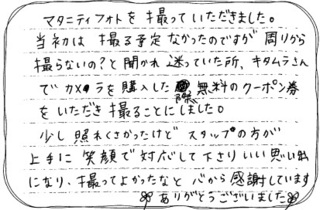 マタニティフォトを撮っていただきました。
当初は撮る予定なかったのですが周りから
撮らないの?と聞かれ迷っていた所、キタムラさん
でカメラを購入した際無料のクーポン券
をいただき撮ることにしました。
少し照れくさかったけどスタッフの方が
上手に笑顔で対応して下さりいい思い出
になり、撮ってよかったなと心から感謝しています
ありがとうございました